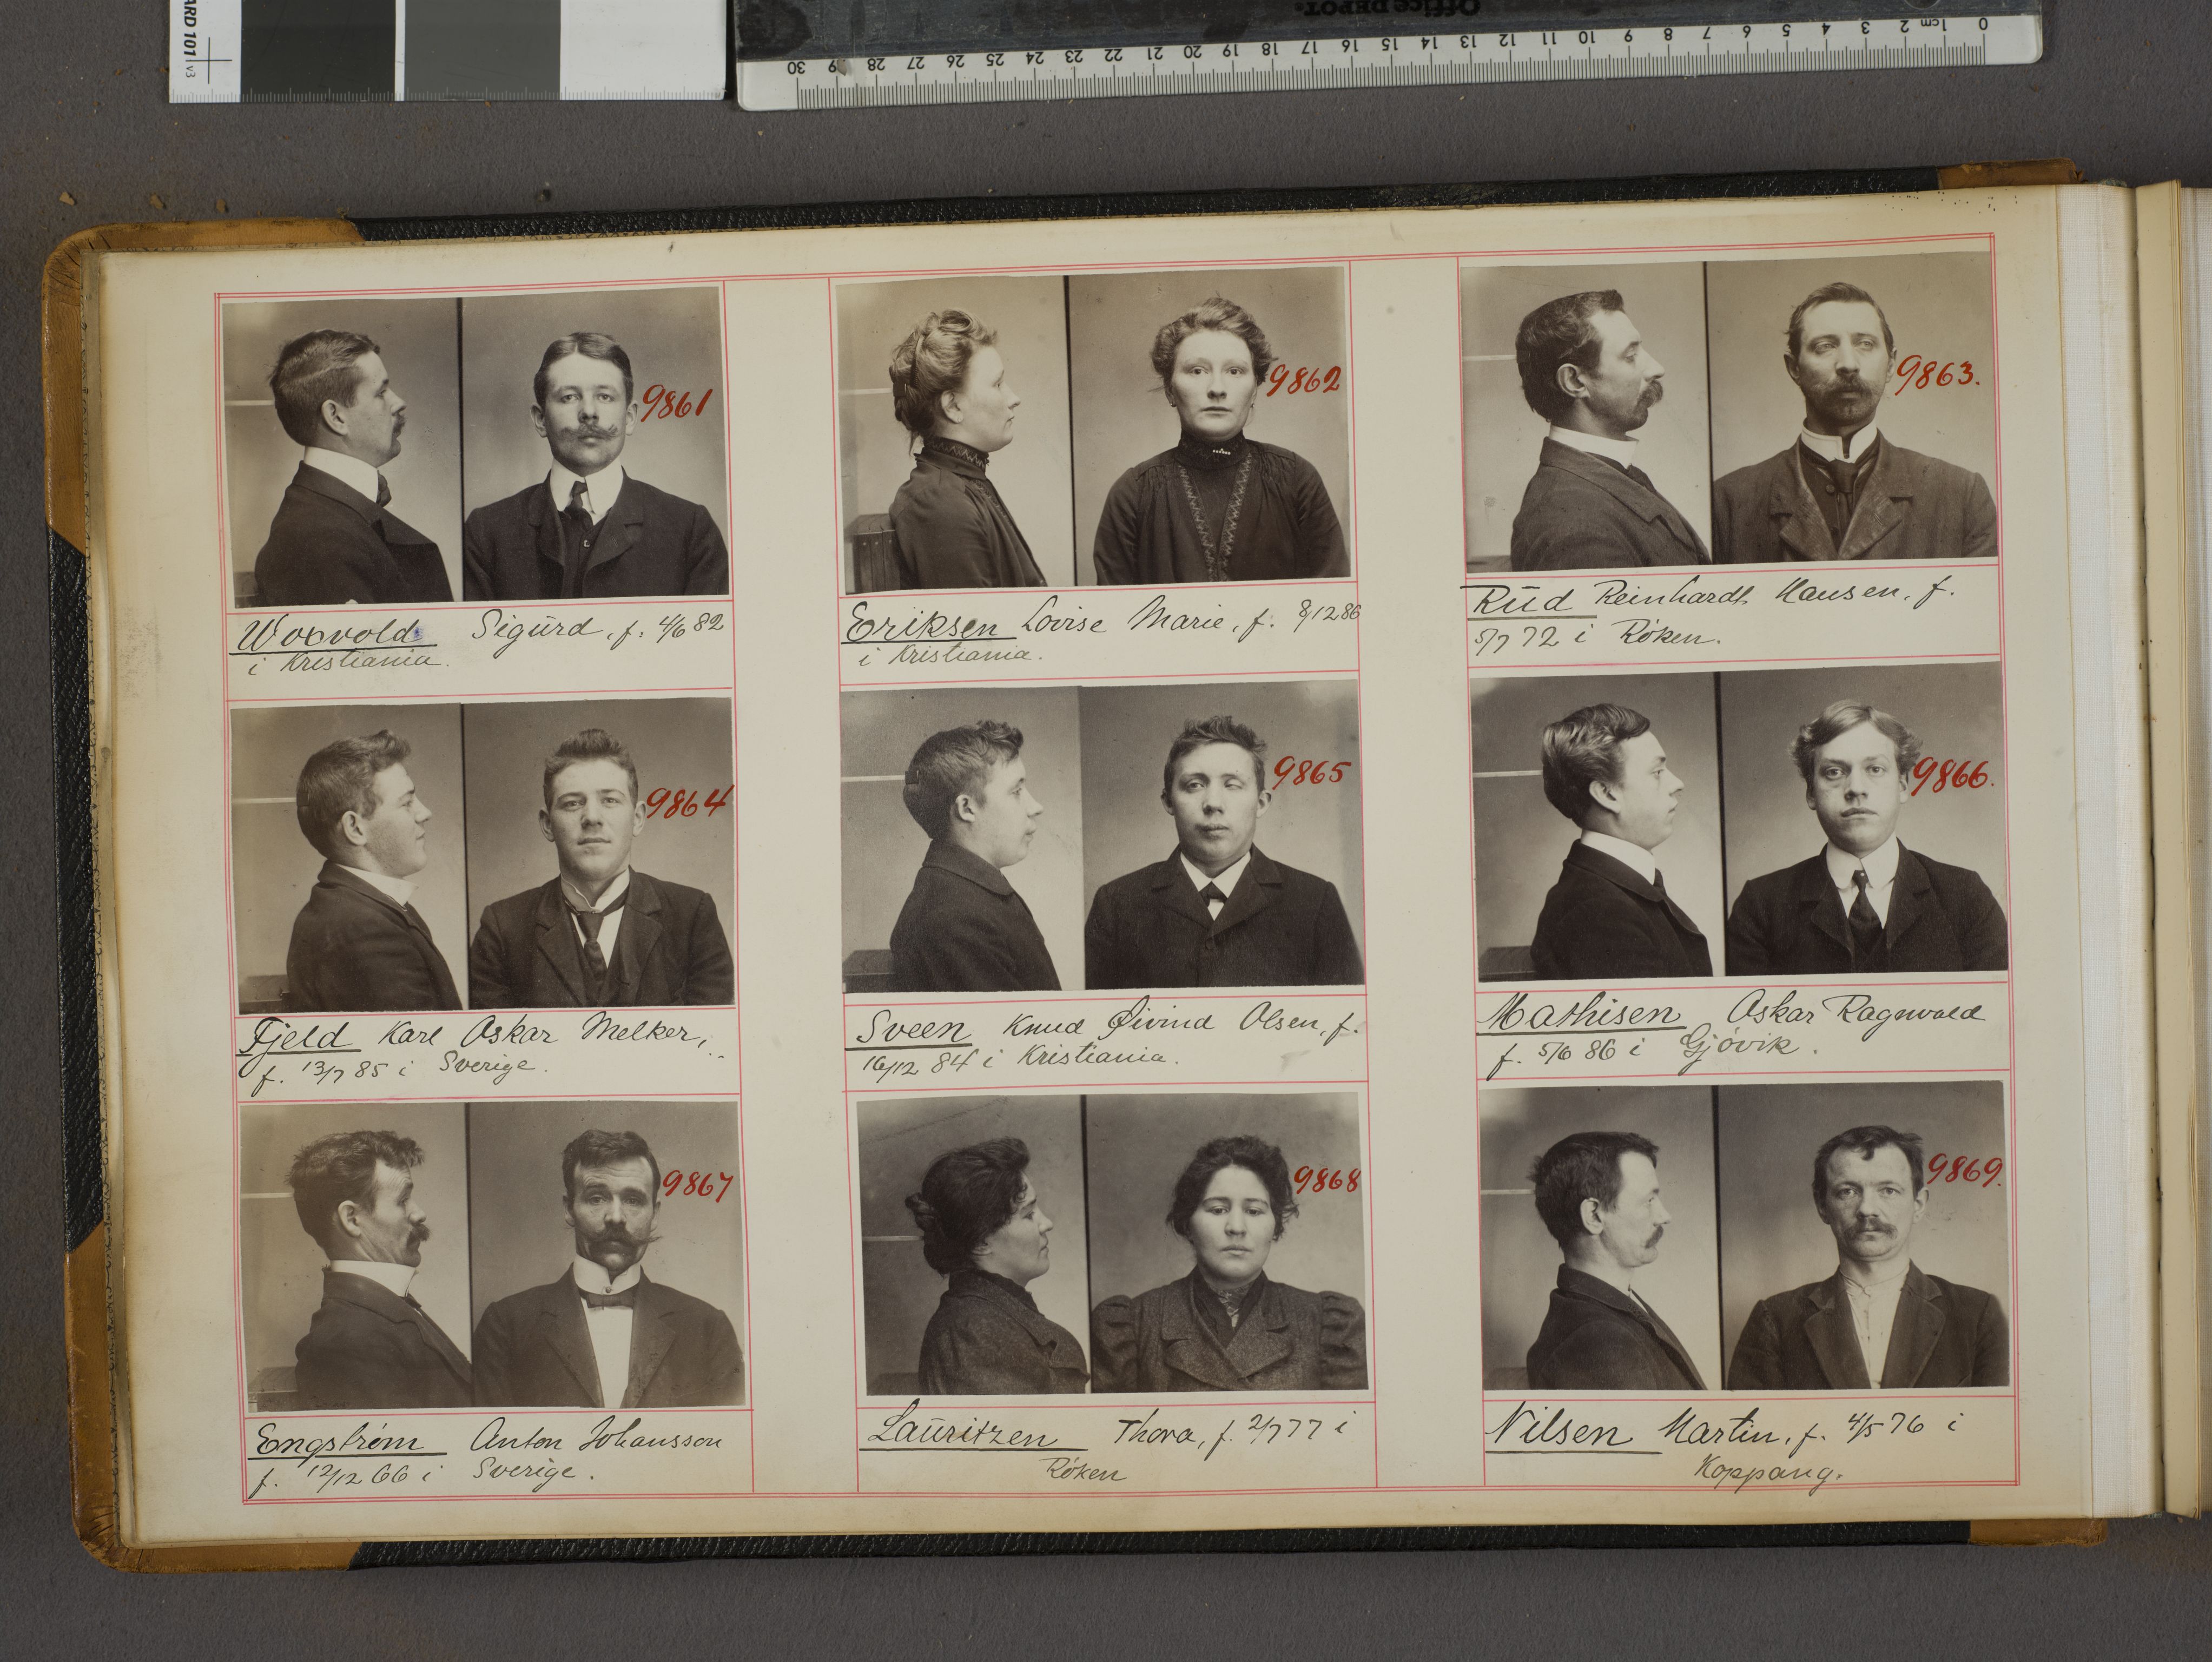 ARD 101 v3
Office DEPOT.
0 1cm 2 3 4 5 6 7 8 9 10 11 12 13 14 15 16 17 18 19 20 21 22 23 24 25 26 27 28 29 30
9861
Sigurd, f. 4/6 82
i Kristiania.
9862
Eriksen Lovise Marie, f. 8/12 86
i Kristiania.
9863.
Rud Reinhardt Hansen, f.
5/7 72 i Röken.
9864
Fjeld Karl Oskar Melker,
f. 13/7 85 i Sverige.
9865
Sveen Knud Øivind Olsen, f.
16/12 84 i Kristiania.
9866.
Mathisen Oskar Ragnvald
f. 5/6 86 i Gjövik.
9867
Engström Anton Johansson
f. 12/12 66 i Sverige.
9868
Lauritzen Thora, f. 2/7 77 i
Röken
9869.
Nilsen Martin, f. 4/5 76 i
Koppang.